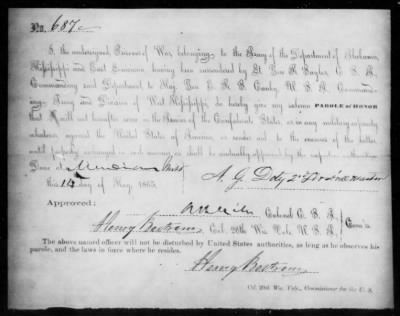 No. 687
I, the undersigned Prisoner of War, belonging to the Army of the Department of Alabama,
Mississippi and East Louisiana, having been surrendered by Lt. Gen. R. Taylor, C. S. A.,
Commanding said Department, to Maj. Gen. E. R. S. Canby, U. S. A. Command-
ing Army and Division of West Mississippi, do hereby give my solemn PAROLE of HONOR
that I will not hereafter serve in the Armies of the Confederate States, or in any military capacity
whatever, against the United States of America, or render aid to the enemies of the latter, until
properly exchanged in such manner as shall be mutually approved by the respective
Done at Meridian Miss
this 14 day of May, 1865.
A. G. Doty 2d
Approved:
Colonel C. S. A.
Henry Bertram Col. 20th Wis. Vols. U. S. A.
The above named officer will not be disturbed by United States authorities, as long as he observes his
parole, and the laws in force where he resides.
Henry Bertram
Col. 20th Wis. Vols., Commissioner for the U. S.